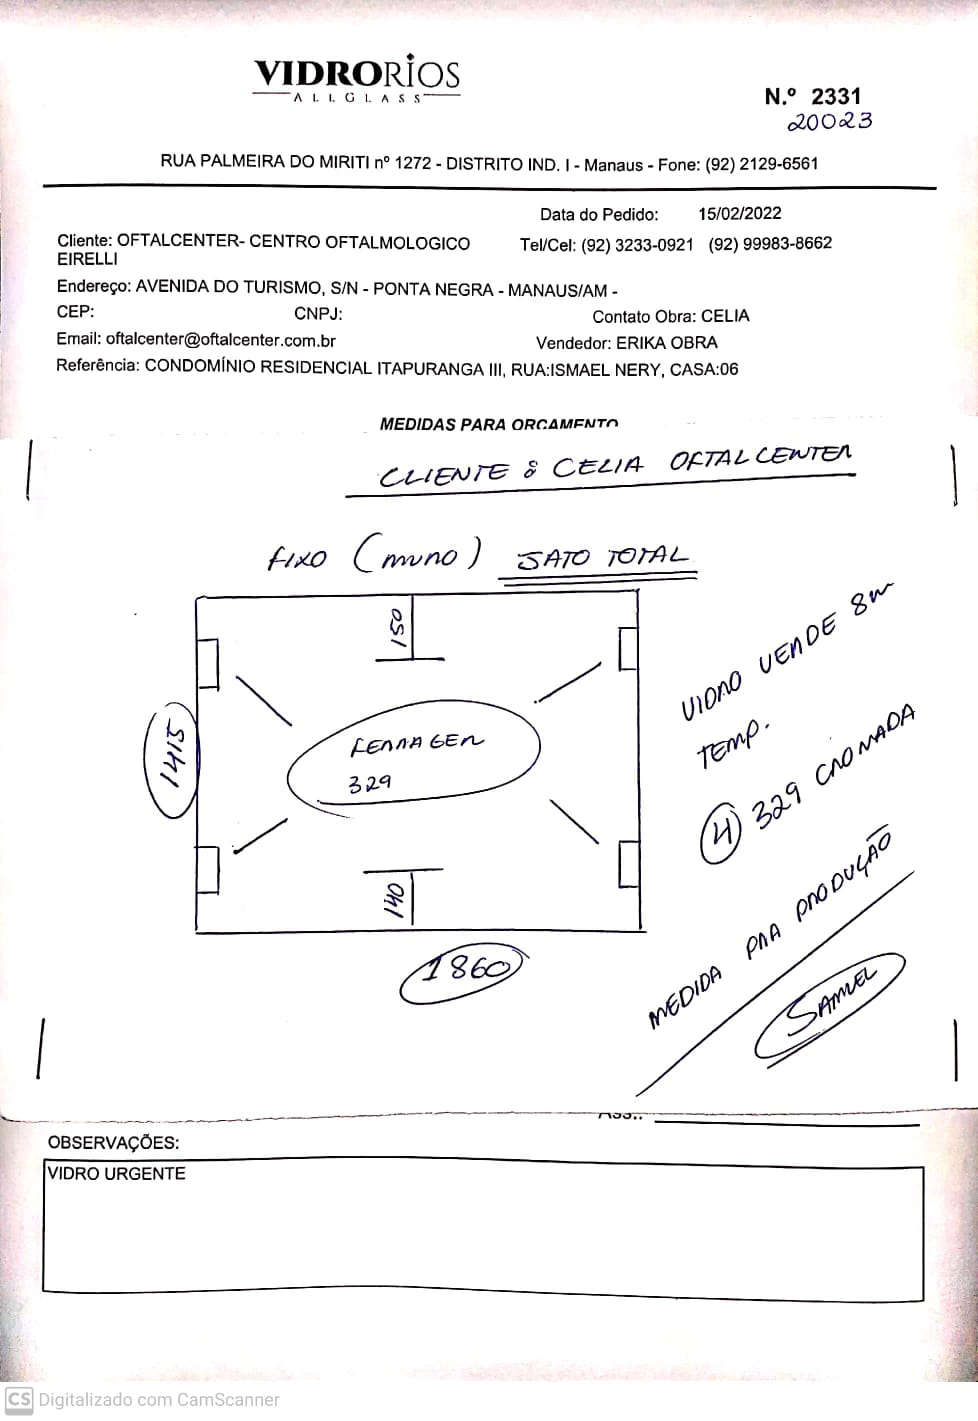 VIDRORIOS
ALLGLASS
N.º 2331
20023
RUA PALMEIRA DO MIRITI nº 1272 - DISTRITO IND. I - Manaus - Fone: (92) 2129-6561
Data do Pedido: 15/02/2022
Cliente: OFTALCENTER- CENTRO OFTALMOLOGICO
EIRELLI
Tel/Cel: (92) 3233-0921 (92) 99983-8662
Endereço: AVENIDA DO TURISMO, S/N - PONTA NEGRA - MANAUS/AM -
CEP: CNPJ: Contato Obra: CELIA
Email: oftalcenter@oftalcenter.com.br Vendedor: ERIKA OBRA
Referência: CONDOMÍNIO RESIDENCIAL ITAPURANGA III, RUA:ISMAEL NERY, CASA:06
MEDIDAS PARA ORÇAMENTO
CLIENTE : CELIA OFTALCENTER
FIXO (MURO) JATO TOTAL
150
1415
FERRAGER
329
140
1860
VIDRO VERDE 8m
TEMP.
4 329 CROMADA
MEDIDA PRA PRODUÇÃO
SAMUEL
ASS.:
OBSERVAÇÕES:
VIDRO URGENTE
CS Digitalizado com CamScanner